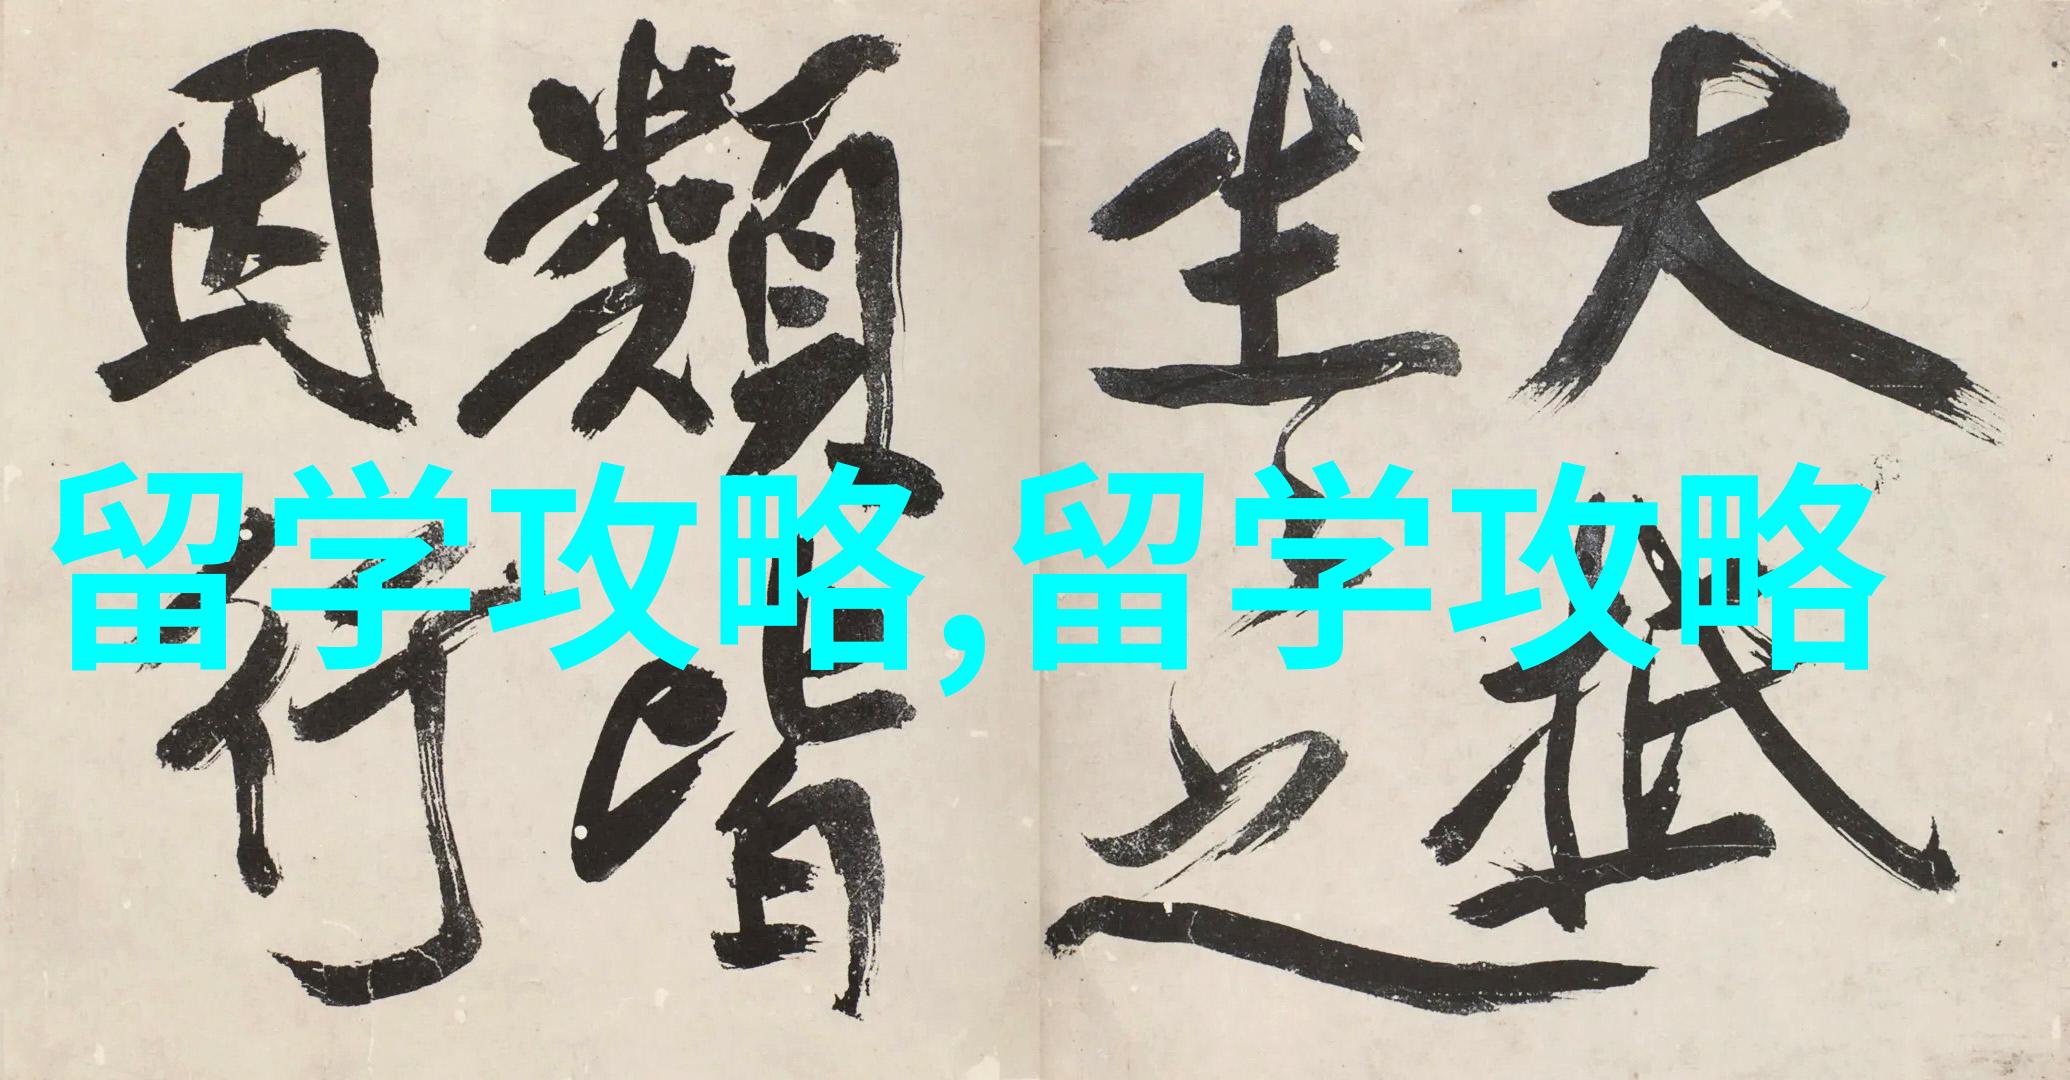 大抵
生之
類皆
因行
留学攻略,留学攻略